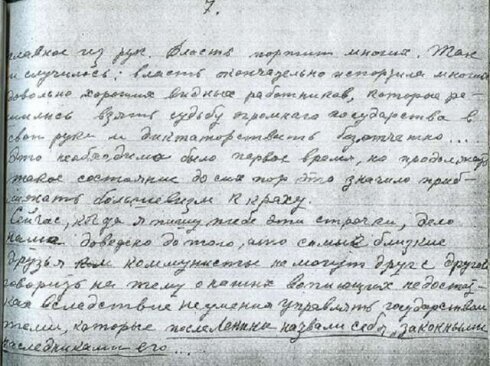 7.
главное из рук. Власть портит многих. Так
и случилось: власть окончательно испортила многих
довольно хороших видных работников, которые ре-
шились взять судьбу огромного государства в
свои руки и диктаторствовать взятчатко...
Это необходимо было первое время, но продолжать
такое состояние до сих пор это значило приб-
лижать большевизм к краху.
Сейчас, когда я пишу тебе эти строчки, дело
нами доведено до того, что самые близкие
друзья коммунисты не могут друг с другом
говорить на тему о наших вопиющих недостат-
ках вследствие неумения управлять государством
теми, которые после Ленина назвали себя "законными
наследниками его...